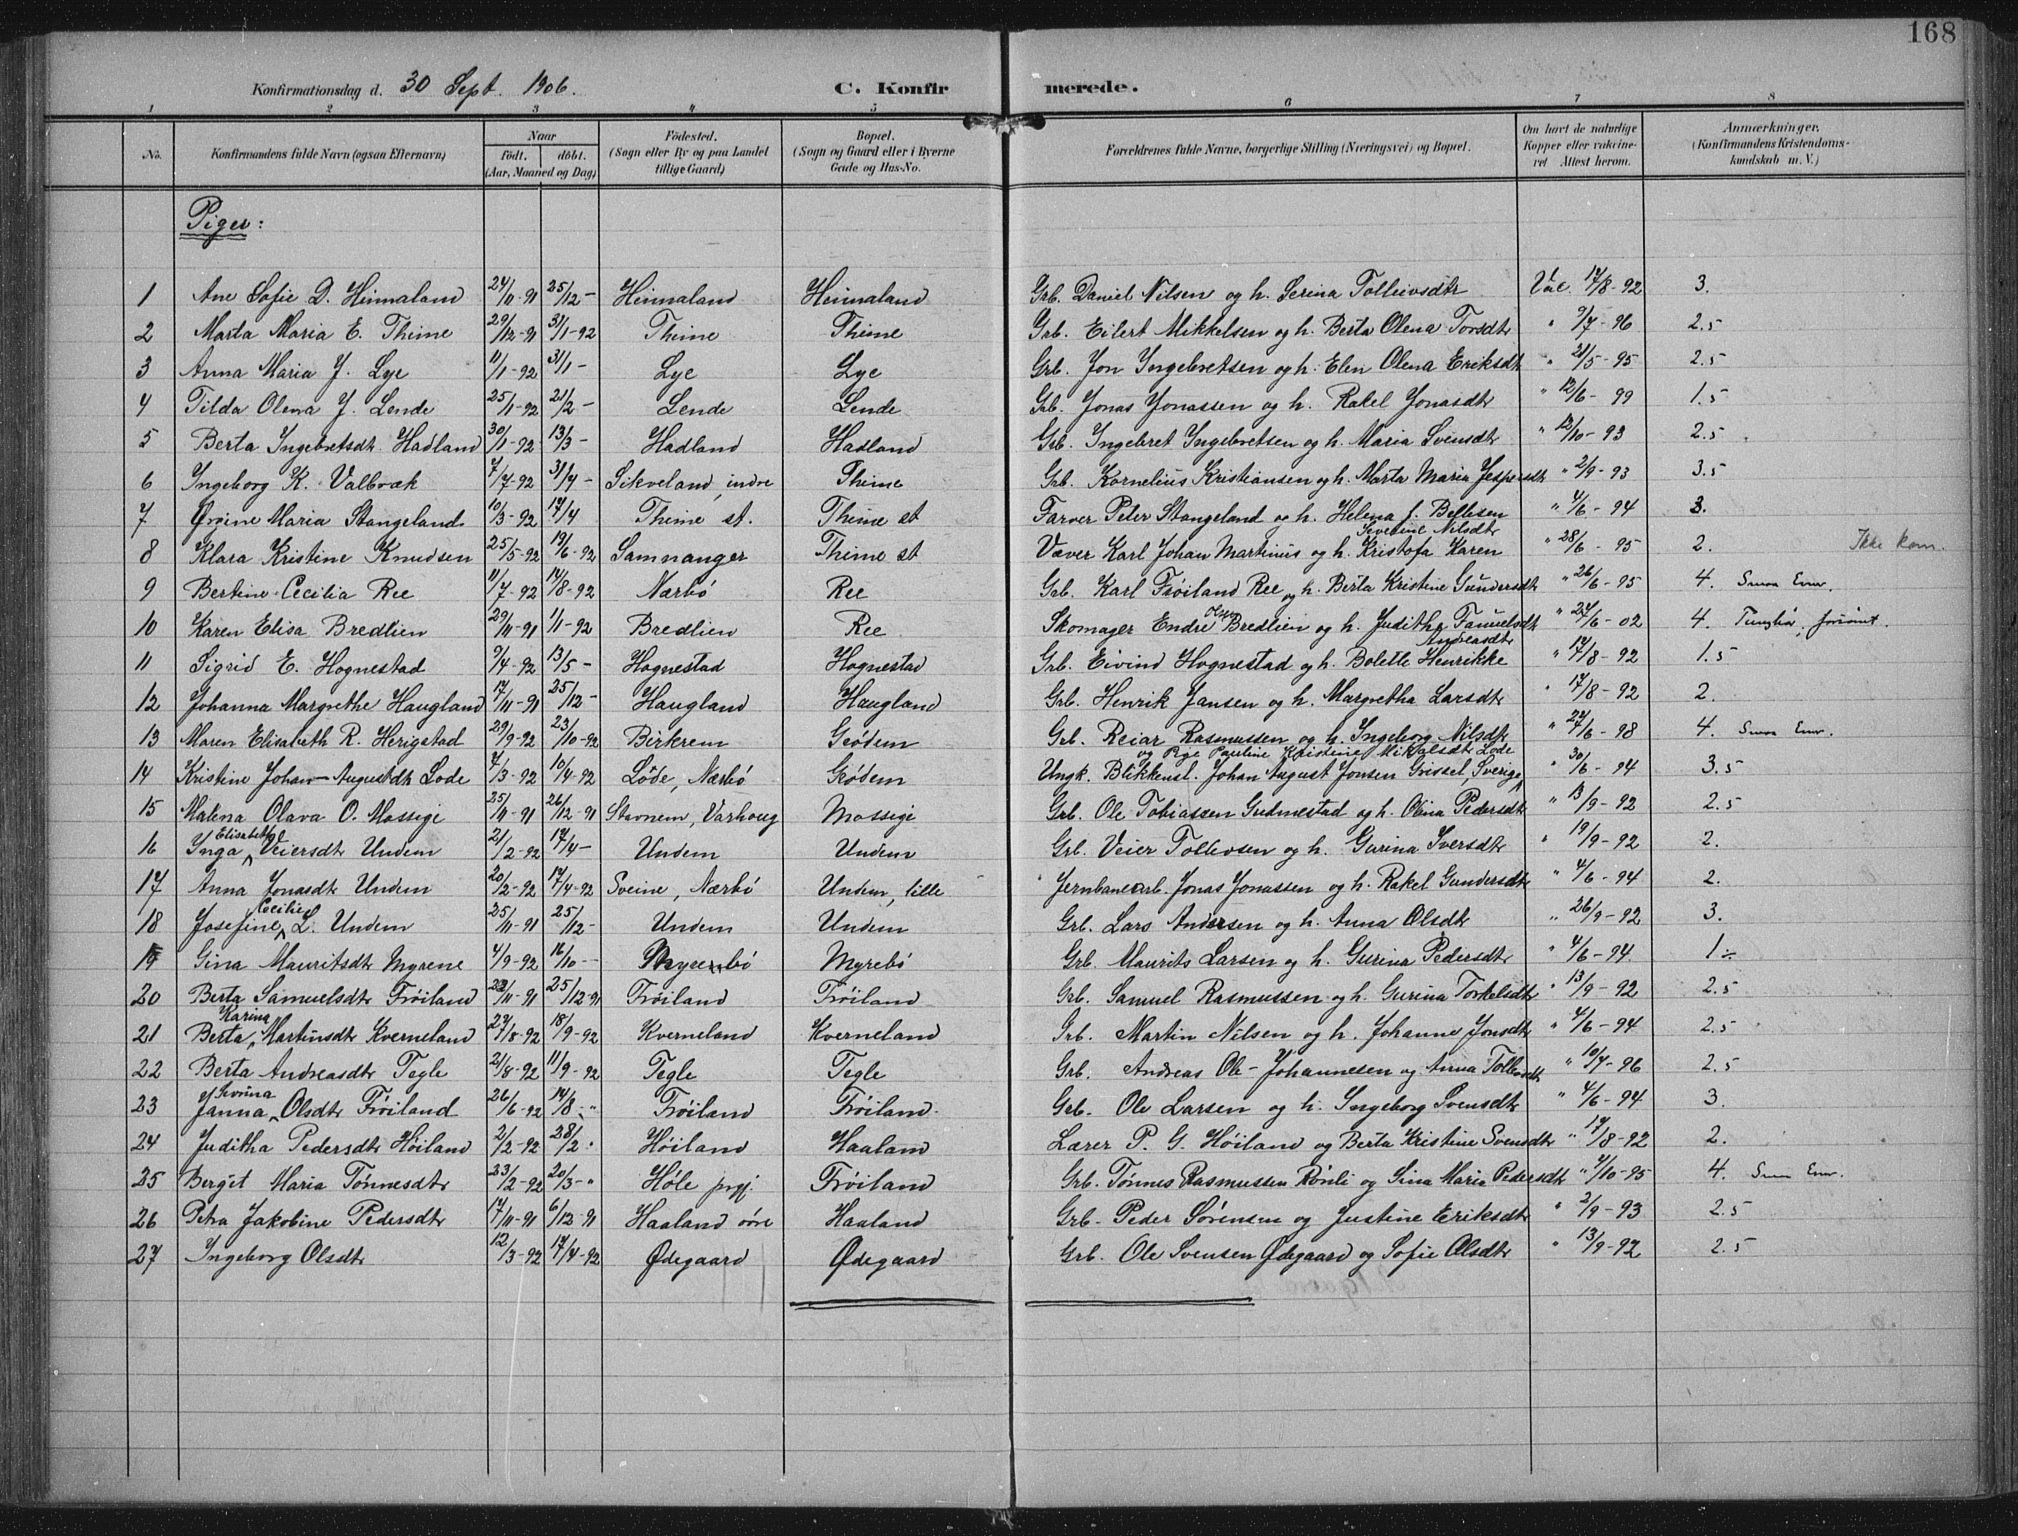 168
Konfirmationsdag d. 30 Sept. 1906. C. Konfirmerede.
1 2 3 4 5 6 7 8
No. Konfirmandens fulde Navn (ogsaa Efternavn) Naar født. døbt. (Aar, Maaned og Dag) Fødested. (Sogn eller By og paa Landet tillige Gaard) Bopæl. (Sogn og Gaard eller i Byerne Gade og Hus-No. Forældrenes fulde Navne, borgerlige Stilling (Næringsvei) og Bopæl. Om havt de naturlige Kopper eller vakcineret Attest herom. Anmærkninger. (Konfirmandens Kristendomskundskab m. V.)
Piger:
1 Ane Sofie D. Hinnaland 24/11-91 25/12- Hinnaland Hinnaland Grb. Daniel Nilsen og h. Serina Tolleivsdtr Vac. 17/8-92 3.
2 Marta Maria E. Thime 29/12-91 31/1-92 Thime Thime Grb. Eilert Mikkelsen og h. Berta Olena Torsdtr " 9/7-96 2.5
3 Anna Maria J. Lye 11/1-92 31/1- Lye Lye Grb. Jon Ingebretsen og h. Elen Olena Eriksdtr " 21/5-95 2.5
4 Tilda Olena J. Lende 25/1-92 21/2- Lende Lende Grb. Jonas Jonassen og h. Rakel Jonasdtr " 12/6-99 1.5
5 Berta Ingebretsdt. Hadland 30/1-92 13/3- Hadland Hadland Grb. Ingebret Ingebretsen og h. Maria Svensdtr " 12/10-93 2.5
6 Ingeborg K. Valbræk 7/7-92 31/7- Sikveland, indre Thime Grb. Kornelius Kristiansen og h. Marta Maria Jespersdtr " 2/9-93 3.5
7 Maria Stangeland 10/3-92 17/4 Thime st. Thime st Farver Peter Stangeland og h. Helena f. Bellesen " 4/6-94 3.
8 Klara Kristine Knudsen 25/5-92 19/6-92 Samnanger Thime st Væver Karl Johan Martinus og h. Kristofa Karen Severine Nilsdtr " 28/6-95 2. Ikke kom.
9 Bertine Cecilia Ree 11/7-92 14/8-92 Nærbø Ree Grb. Karl Frøiland Ree og h. Berta Kristine Gundersdtr " 26/6-95 4. Smaa Evner.
10 Karen Elisa Bredlien 29/11-91 1/1-92 Bredlien Ree Skomager Endre Olsen Bredlien og h. Juditha Samuelsdt " 24/6-02 4. Tunghør, forsømt.
11 Sigrid E. Hognestad 9/4-92 13/5- Hognestad Hognestad Grb. Eivind Hognestad og h. Bolette Henrikke Andreasdtr " 17/8-92 1.5
12 Johanna Margrethe Haugland 17/11-91 25/12- Haugland Haugland Grb. Henrik Jansen og h. Margretha Larsdtr " 17/8-92 2.
13 Maren Elisabeth R. Herigstad 29/9-92 23/10-92 Birkrem Grødem Grb. Reiar Rasmussen og h. Ingeborg Nilsdtr " 22/6-98 4. Smaa Evner.
14 Kristine Johan-Augustdtr Lode 7/3-92 10/4-92 Lode, Nærbø Grødem Ungk. Blikkensl. Johan August Jonsen Grissel, Sverige, og Pige Pauline Kristine Mikalsdtr Lode " 30/6-94 3.5
15 Malena Olava O. Mossigi 25/11-91 26/12-91 Stavnem, Varhoug Mossigi Grb. Ole Tobiassen Gudmestad og h. Olina Pedersdtr " 13/9-92 2.5
16 Inga Elisabeth Veiersdtr Undem 21/2-92 17/4- Undem Undem Grb. Veier Tollevsen og h. Gurina Iversdtr " 19/9-92 2.
17 Anna Jonasdtr Undem 20/2-92 17/4-92 Sveine, Nærbø Undem, lille Jernbanearb. Jonas Jonassen og h. Rakel Gundersdtr " 4/6-94 2.
18 Josefine Cecilie L. Undem 25/11-91 25/12- Undem Undem Grb. Lars Andersen og h. Anna Olsdtr " 26/9-92 3.
19 Gina Mauritsdtr Myrene 4/9-92 16/10- Myrebø Myrebø Grb. Maurits Larsen og h. Gurina Pedersdtr " 4/6-94 1÷
20 Berta Samuelsdtr Frøiland 22/11-91 25/12-91 Frøiland Frøiland Grb. Samuel Rasmussen og h. Gurina Torkelsdtr " 13/9-92 2.5
21 Berta Karina Martinsdtr Kverneland 27/8-92 18/9-92 Kverneland Kverneland Grb. Martin Nilsen og h. Johanne Jonsdtr " 4/6-94 2.5
22 Berta Andreasdtr Tegle 21/8-92 11/9-92 Tegle Tegle Grb. Andreas Ole-Johannesen og Anna Tollevsdtr " 10/7-96 2.5
23 Janna Olsdtr Frøiland 26/6-92 14/8 " Frøiland Frøiland Grb. Ole Larsen og h. Ingeborg Svensdtr " 4/6-94 3.
24 Juditha Pedersdtr Høiland 2/2-92 28/2 " Høiland Haaland Lærer P. G. Høiland og Berta Kristine Svensdtr " 17/8-92 2.
25 Berget Maria Tønnesdtr 23/2-92 20/3-" Høle prgj. Frøiland Grb. Tønnes Rasmussen Rønli og Sina Maria Pedersdtr " 4/10-95 4. Smaa Evner.
26 Petra Jakobine Pedersdtr 17/11-91 6/12-91 Haaland øvre Haaland Grb. Peder Sørensen og Justine Eriksdtr " 2/9-93 2.5
27 Ingeborg Olsdtr 12/3-92 17/4-92 Ødegaard Ødegaard Grb. Ole Svensen Ødegaard og Sofie Olsdtr " 13/9-92 2.5